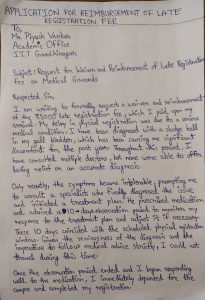 APPLICATION FOR REIMBURSEMENT OF LATE
REGISTRATION FEE
To,
Mr. Piyush Vankar
Academic Office
IIT Gandhinagar
Subject: Request for Waiver and Reimbursement of Late Registration
Fee on Medical Grounds
Respected Sir,
I am writing to formally request a waiver and reimbursement
of the ₹5000 late registration fee, which I paid upon my
arrival. My delay in physical registration was due to a serious
medical condition. I have been diagnosed with a sludge ball
in my gall bladder, which has been causing me significant
discomfort for the past year. Throughout this period, I
have consulted multiple doctors, but none were able to offer
lasting relief or an accurate diagnosis.
Only recently, the symptoms became intolerable, prompting me
to consult a specialist who finally diagnosed the issue
and initiated a treatment plan. He prescribed medication
and advised a 10-days observation period to monitor my
response to the treatment plan and adjust it if necessary.
These 10 days coincided with the scheduled physical registration
window. Given the seriousness of the diagnosis and the
imperative to follow medical advice strictly, I could not
travel during this time.
Once the observation period ended and I began responding
well to the medication, I immediately departed for the
campus and completed my registration